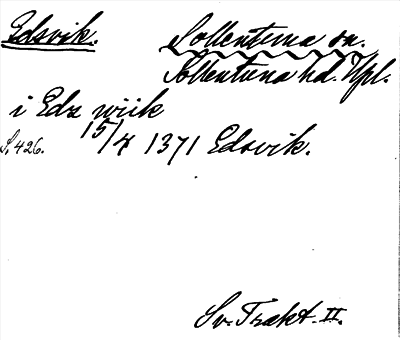 Edsvik. Sollentuna sn.
Sollentuna hd. Upl.
i Edz wiik
S. 426. 15/4 1371 Edsvik.
Sv. Trakt. II.